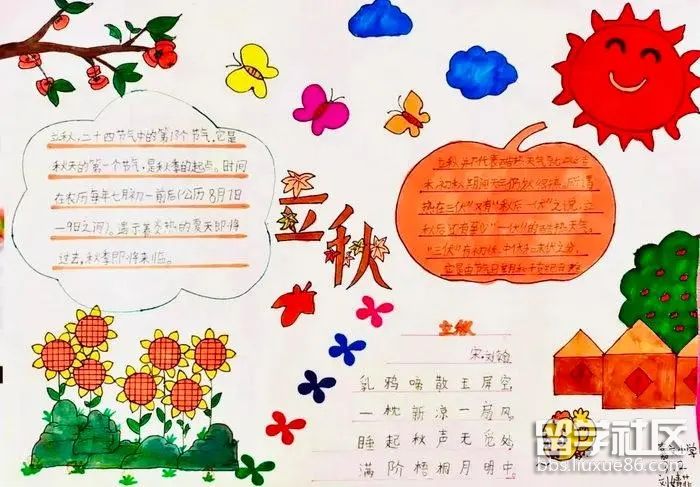 立秋，二十四节气中的第13个节气，它是
秋天的第一个节气，是秋季的起点。时间
在农历每年七月初一前后（公历8月7日
—9日之间）。预示着炎热的夏天即将
过去，秋季即将来临。
立秋
立秋并不代表
末，初秋期间天气仍然很热，所谓
热在三伏"又有"秋后一伏"之说，立
秋后还有至少"一伏"的酷热天气。
"三伏"有初伏、中伏和末伏之分，
立秋
宋·刘翰
乳鸦啼散玉屏空
一枕新凉一扇风
睡起秋声无觅处
满阶梧桐月明中。
小学
刘
留学社区
bbs.liuxue86.com